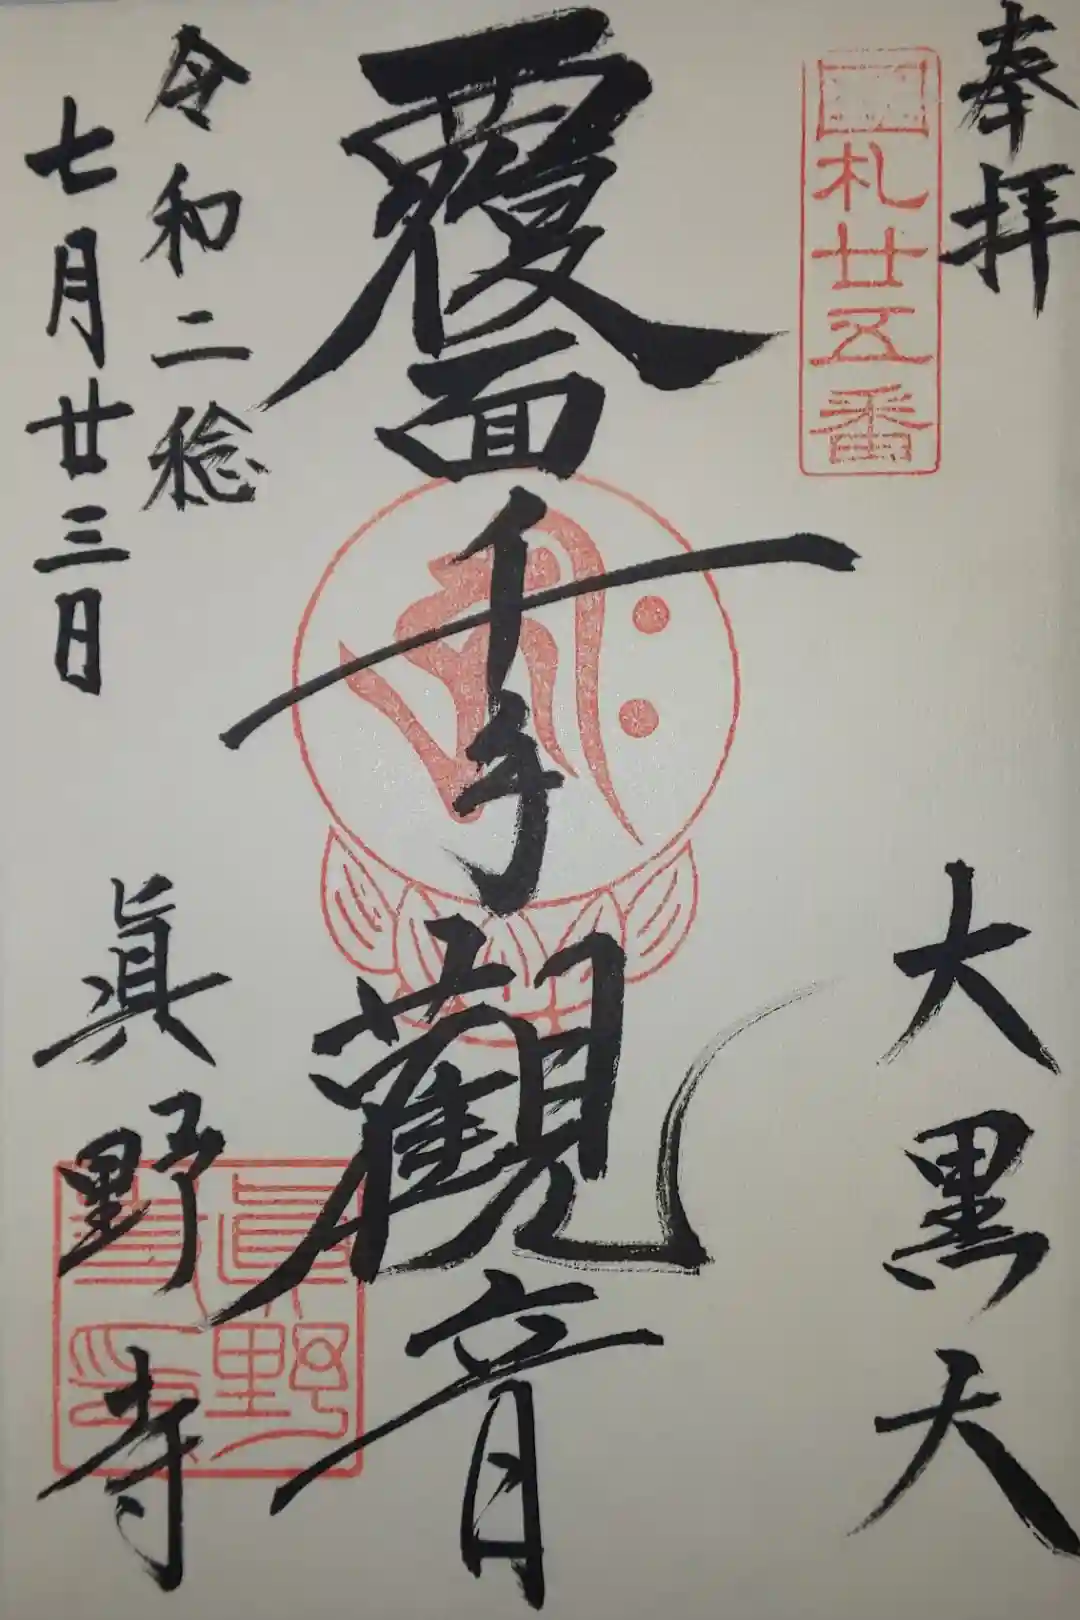 奉拝
大黒天
札廿五番
覆面千手觀音
令和二稔
七月廿三日
眞野寺